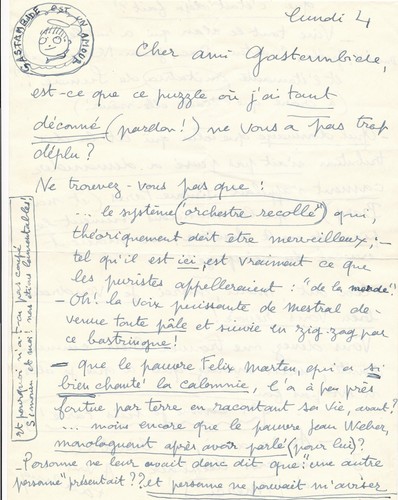 GASTAMBIDE EST UN AMOUR
lundi 4
Cher ami Gastambide,
est-ce que ce puzzle où j'ai tant
déconné (pardon!) ne vous a pas trop
déplu?
Ne trouvez-vous pas que:
... le système "orchestre recollé" qui,
théoriquement doit être merveilleux:-
tel qu'il est ici, est vraiment ce que
les puristes appelleraient: "de la merde"!
- Oh! la voix puissante de mestral de-
venue toute pâle et suivie en zig-zag par
ce bastringue!
- que le pauvre Felix Marten, qui a si
bien chanté la calomnie, l'a à peu près
foutue par terre en racontant sa vie, avant?
... moins encore que le pauvre Jean Weber,
monologuant après avoir parlé (pour lui)?
- Personne ne leur avait donc dit que: "une autre
personne" présentait??, et personne ne pouvait m'aviser
et pourquoi n'a-t-on pas coupé
Simonen et moi! nos dires lamentables!